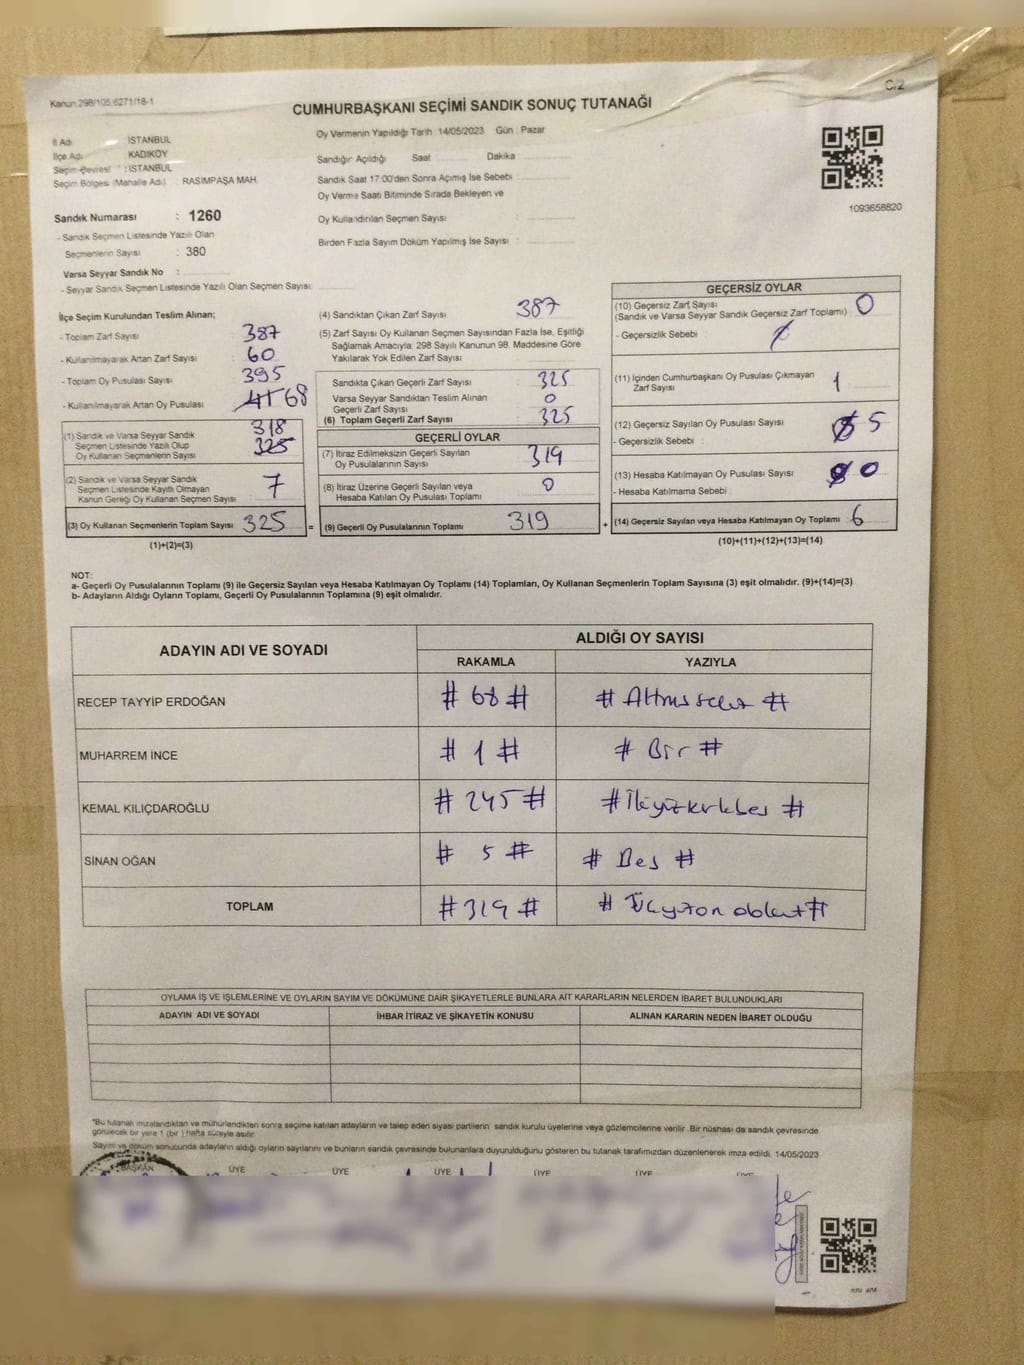 Kanun 298/105,6271/18-1
C/2
CUMHURBAŞKANI SEÇİMİ SANDIK SONUÇ TUTANAĞI
İl Adı : İSTANBUL
İlçe Adı : KADIKÖY
Seçim Çevresi : İSTANBUL
Seçim Bölgesi (Mahalle Adı) : RASİMPAŞA MAH.
Sandık Numarası : 1260
- Sandık Seçmen Listesinde Yazılı Olan
Seçmenlerin Sayısı : 380
Varsa Seyyar Sandık No :
- Seyyar Sandık Seçmen Listesinde Yazılı Olan Seçmen Sayısı:
Oy Vermenin Yapıldığı Tarih : 14/05/2023 Gün : Pazar
Sandığın Açıldığı Saat Dakika
Sandık Saat 17:00'den Sonra Açımış İse Sebebi :
Oy Verme Saati Bitiminde Sırada Bekleyen ve
Oy Kullandırılan Seçmen Sayısı :
Birden Fazla Sayım Döküm Yapılmış İse Sayısı :
1093658820
İlçe Seçim Kurulundan Teslim Alınan;
- Toplam Zarf Sayısı : 387
- Kullanılmayarak Artan Zarf Sayısı : 60
- Toplam Oy Pusulası Sayısı : 395
- Kullanılmayarak Artan Oy Pusulası : 68
(1) Sandık ve Varsa Seyyar Sandık 318
Seçmen Listesinde Yazılı Olup 325
Oy Kullanan Seçmenlerin Sayısı
(2) Sandık ve Varsa Seyyar Sandık
Seçmen Listesinde Kayıtlı Olmayan 7
Kanun Gereği Oy Kullanan Seçmen Sayısı
(3) Oy Kullanan Seçmenlerin Toplam Sayısı 325
(1)+(2)=(3)
(4) Sandıktan Çıkan Zarf Sayısı : 387
(5) Zarf Sayısı Oy Kullanan Seçmen Sayısından Fazla İse, Eşitliği
Sağlamak Amacıyla; 298 Sayılı Kanunun 98. Maddesine Göre
Yakılarak Yok Edilen Zarf Sayısı :
Sandıkta Çıkan Geçerli Zarf Sayısı : 325
Varsa Seyyar Sandıktan Teslim Alınan
Geçerli Zarf Sayısı : 0
(6) Toplam Geçerli Zarf Sayısı : 325
GEÇERLİ OYLAR
(7) İtiraz Edilmeksizin Geçerli Sayılan
Oy Pusulalarının Sayısı : 319
(8) İtiraz Üzerine Geçerli Sayılan veya
Hesaba Katılan Oy Pusulası Toplamı : 0
= (9) Geçerli Oy Pusulalarının Toplamı : 319
GEÇERSİZ OYLAR
(10) Geçersiz Zarf Sayısı
(Sandık ve Varsa Seyyar Sandık Geçersiz Zarf Toplamı) : 0
- Geçersizlik Sebebi :
(11) İçinden Cumhurbaşkanı Oy Pusulası Çıkmayan
Zarf Sayısı : 1
(12) Geçersiz Sayılan Oy Pusulası Sayısı : 5
- Geçersizlik Sebebi :
(13) Hesaba Katılmayan Oy Pusulası Sayısı : 0
- Hesaba Katılmama Sebebi :
+ (14) Geçersiz Sayılan veya Hesaba Katılmayan Oy Toplamı : 6
(10)+(11)+(12)+(13)=(14)
NOT:
a- Geçerli Oy Pusulalarının Toplamı (9) ile Geçersiz Sayılan veya Hesaba Katılmayan Oy Toplamı (14) Toplamları, Oy Kullanan Seçmenlerin Toplam Sayısına (3) eşit olmalıdır. (9)+(14)=(3)
b- Adayların Aldığı Oyların Toplamı, Geçerli Oy Pusulalarının Toplamına (9) eşit olmalıdır.
ADAYIN ADI VE SOYADI
ALDIĞI OY SAYISI
RAKAMLA YAZIYLA
RECEP TAYYİP ERDOĞAN # 68 # # Altmışsekiz #
MUHARREM İNCE # 1 # # Bir #
KEMAL KILIÇDAROĞLU # 245 # # İkiyüzkırkbeş #
SİNAN OĞAN # 5 # # Beş #
TOPLAM # 319 # # Üçyüzondokuz #
OYLAMA İŞ VE İŞLEMLERİNE VE OYLARIN SAYIM VE DÖKÜMÜNE DAİR ŞİKAYETLERLE BUNLARA AİT KARARLARIN NELERDEN İBARET BULUNDUKLARI
ADAYIN ADI VE SOYADI İHBAR İTİRAZ VE ŞİKAYETİN KONUSU ALINAN KARARIN NEDEN İBARET OLDUĞU
"Bu tutanak imzalandıktan ve mühürlendikten sonra seçime katılan adayların ve talep eden siyasi partilerin sandık kurulu üyelerine veya gözlemcilerine verilir. Bir nüshası da sandık çevresinde
görülecek bir yere 1 (bir) hafta süreyle asılır.
Sayım ve döküm sonucunda adayların aldığı oyların sayılarını ve bunların sandık çevresinde bulunanlara duyurulduğunu gösteren bu tutanak tarafımızdan düzenlenerek imza edildi. 14/05/2023
BAŞKAN ÜYE ÜYE ÜYE ÜYE ÜYE ÜYE